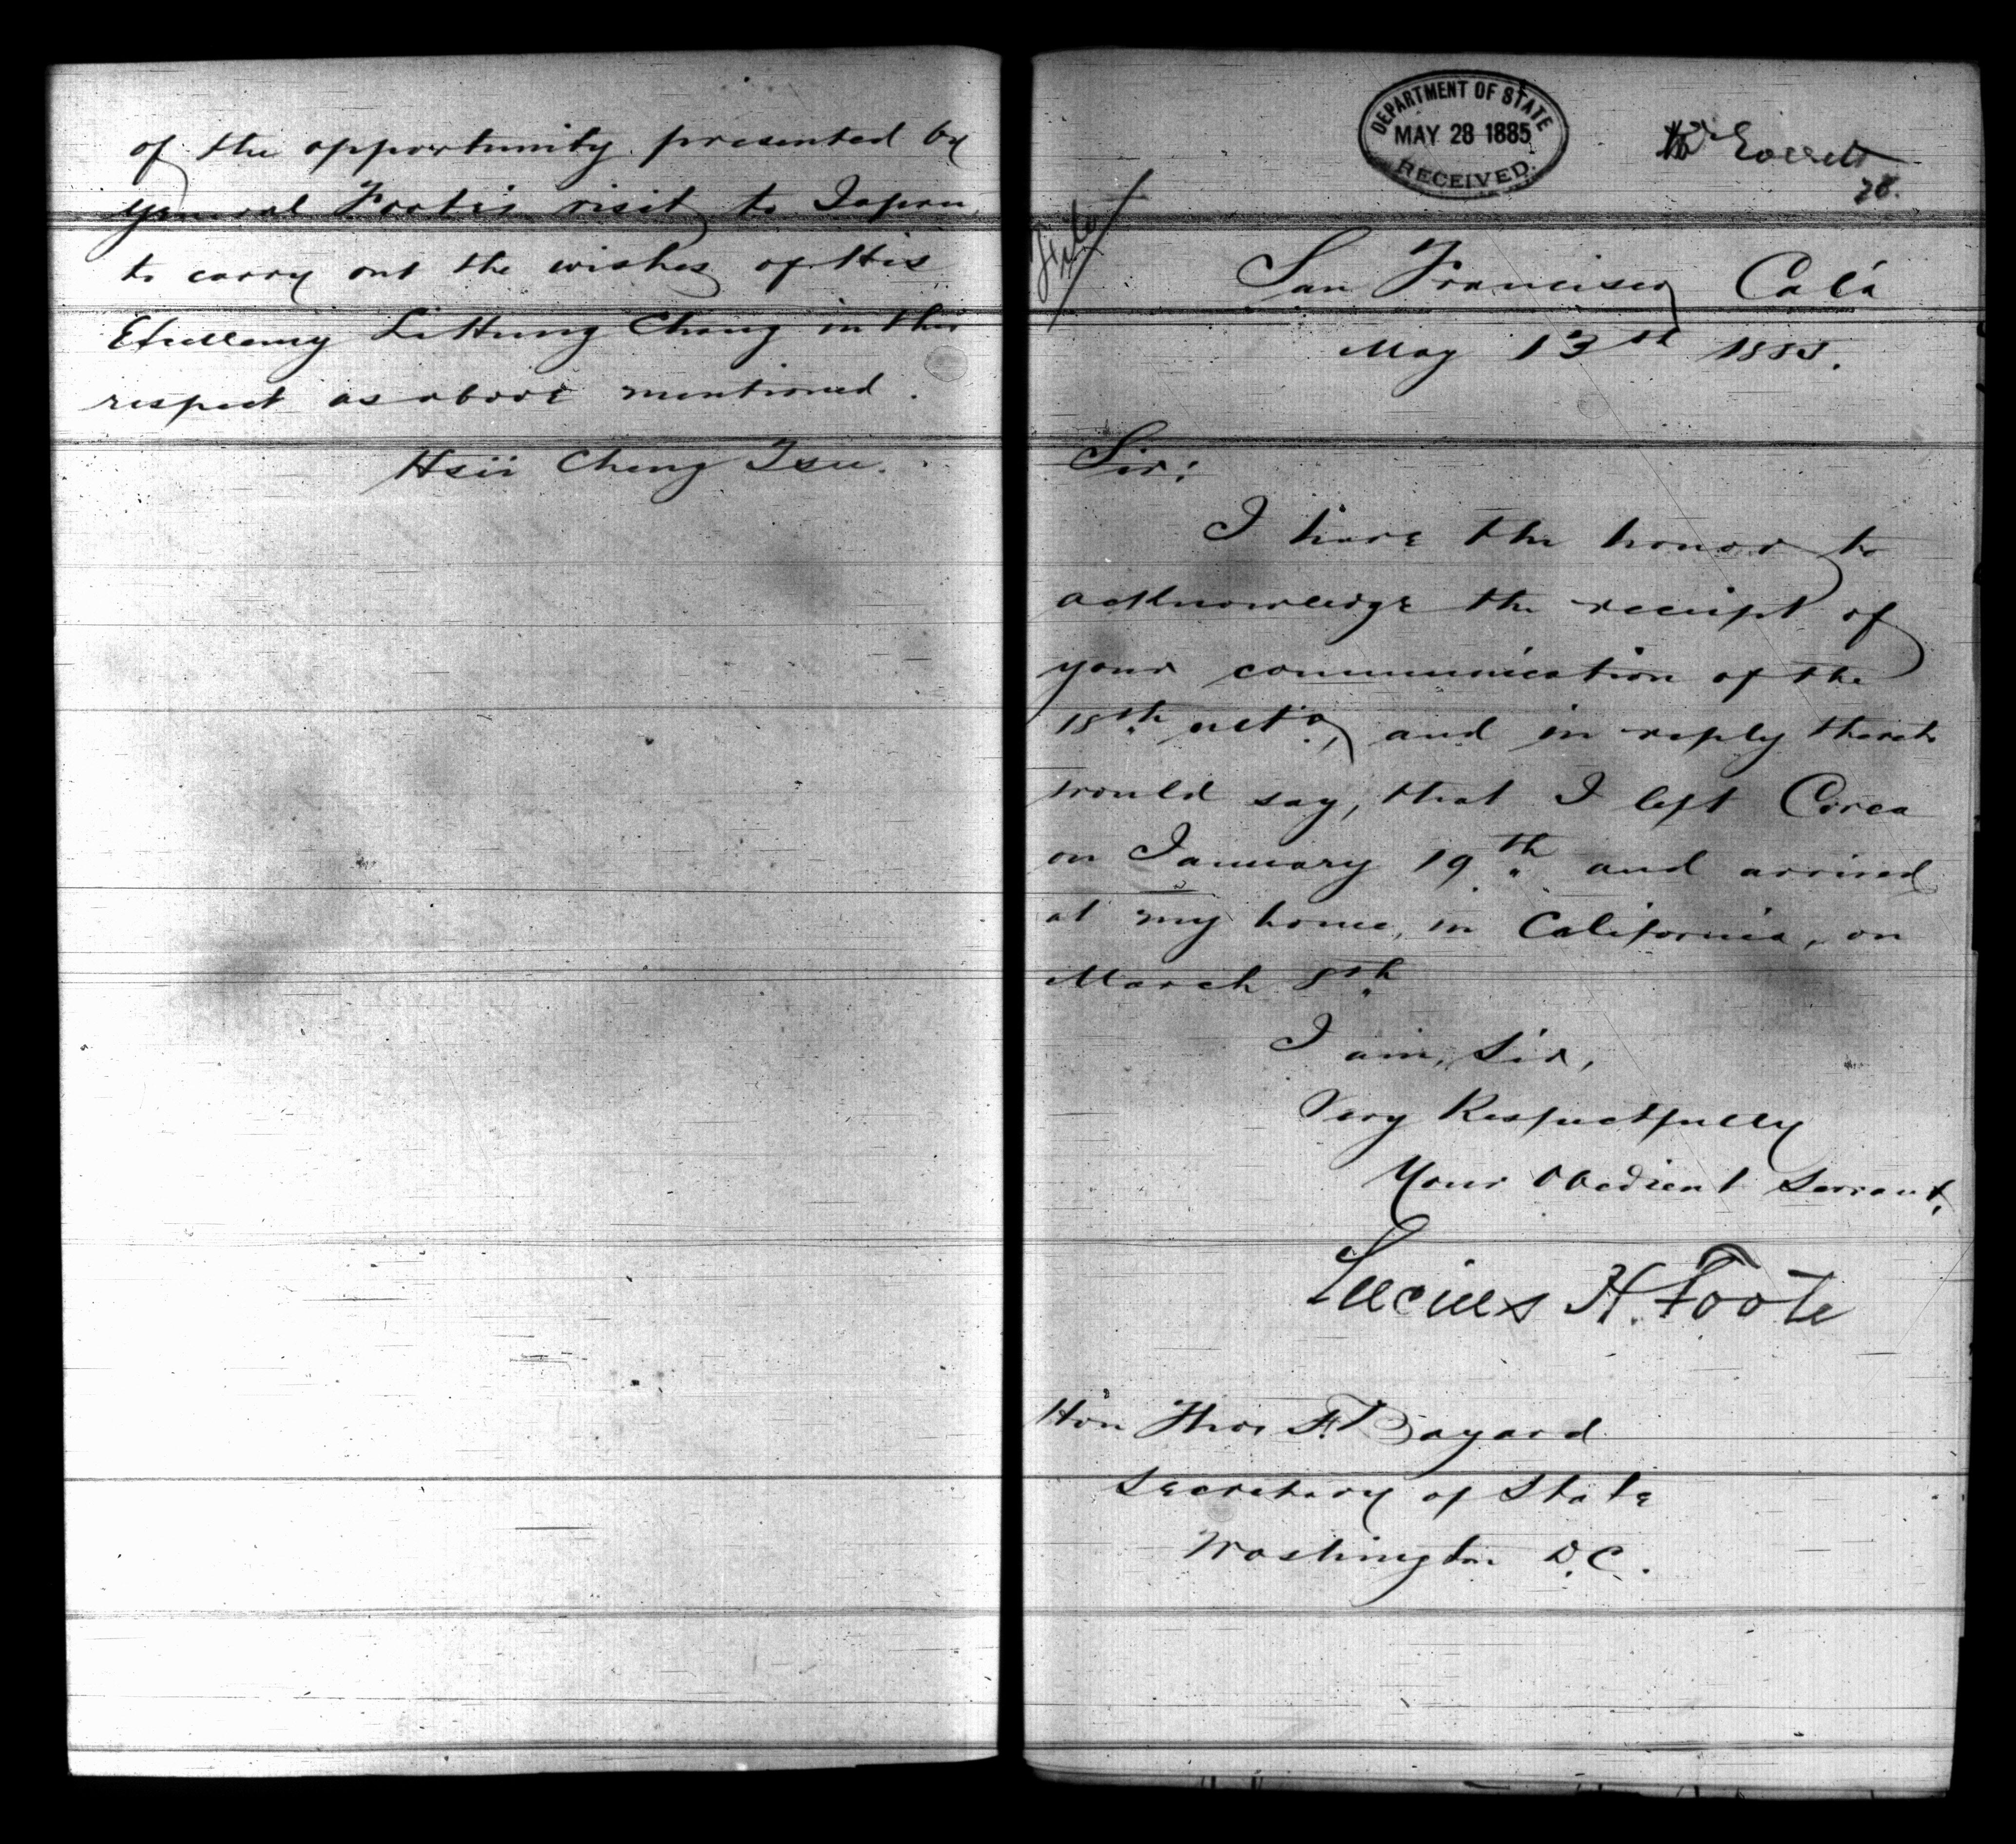 of the opportunity presented by
General Foote's visit to Japan
to carry out the wishes of His
Excellency Li Hung Chang in this
respect as above mentioned.
Hsii Cheng Tsu.
DEPARTMENT OF STATE
MAY 28 1885
RECEIVED.
Mr Everett
28.
File
San Francisco, Cala
May 13th 1885.
Sir:
I have the honor to
acknowledge the receipt of
your communication of the
18th ulto, and in reply thereto
would say, that I left Corea
on January 19th and arrived
at my home, in California, on
March 8th
I am, Sir,
Very Respectfully
Your Obedient Servant,
Lucius H. Foote
Hon Thos F. Bayard
Secretary of State
Washington D.C.